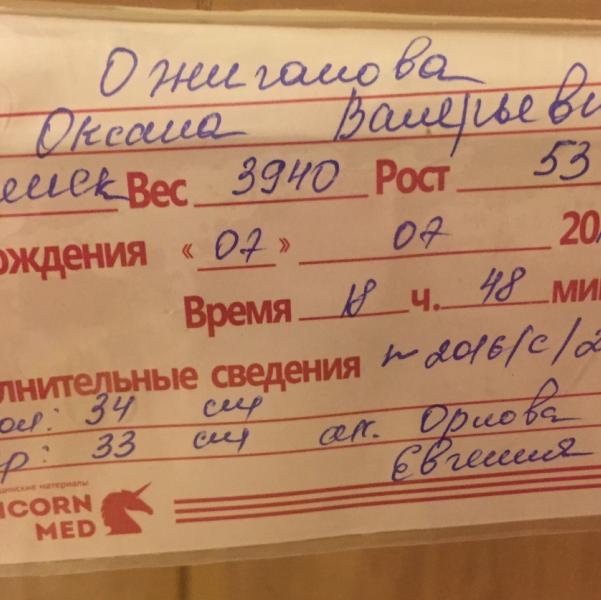 Ожиганова
Оксана Валерьеви
Вес 3940 Рост 53
ождения «07» 07 20
Время 18 ч. 48 мин
лнительные сведения ~2016/с/2
ол: 34 см
р: 33 см ак. Орлова
Евгения
ICORN
MED